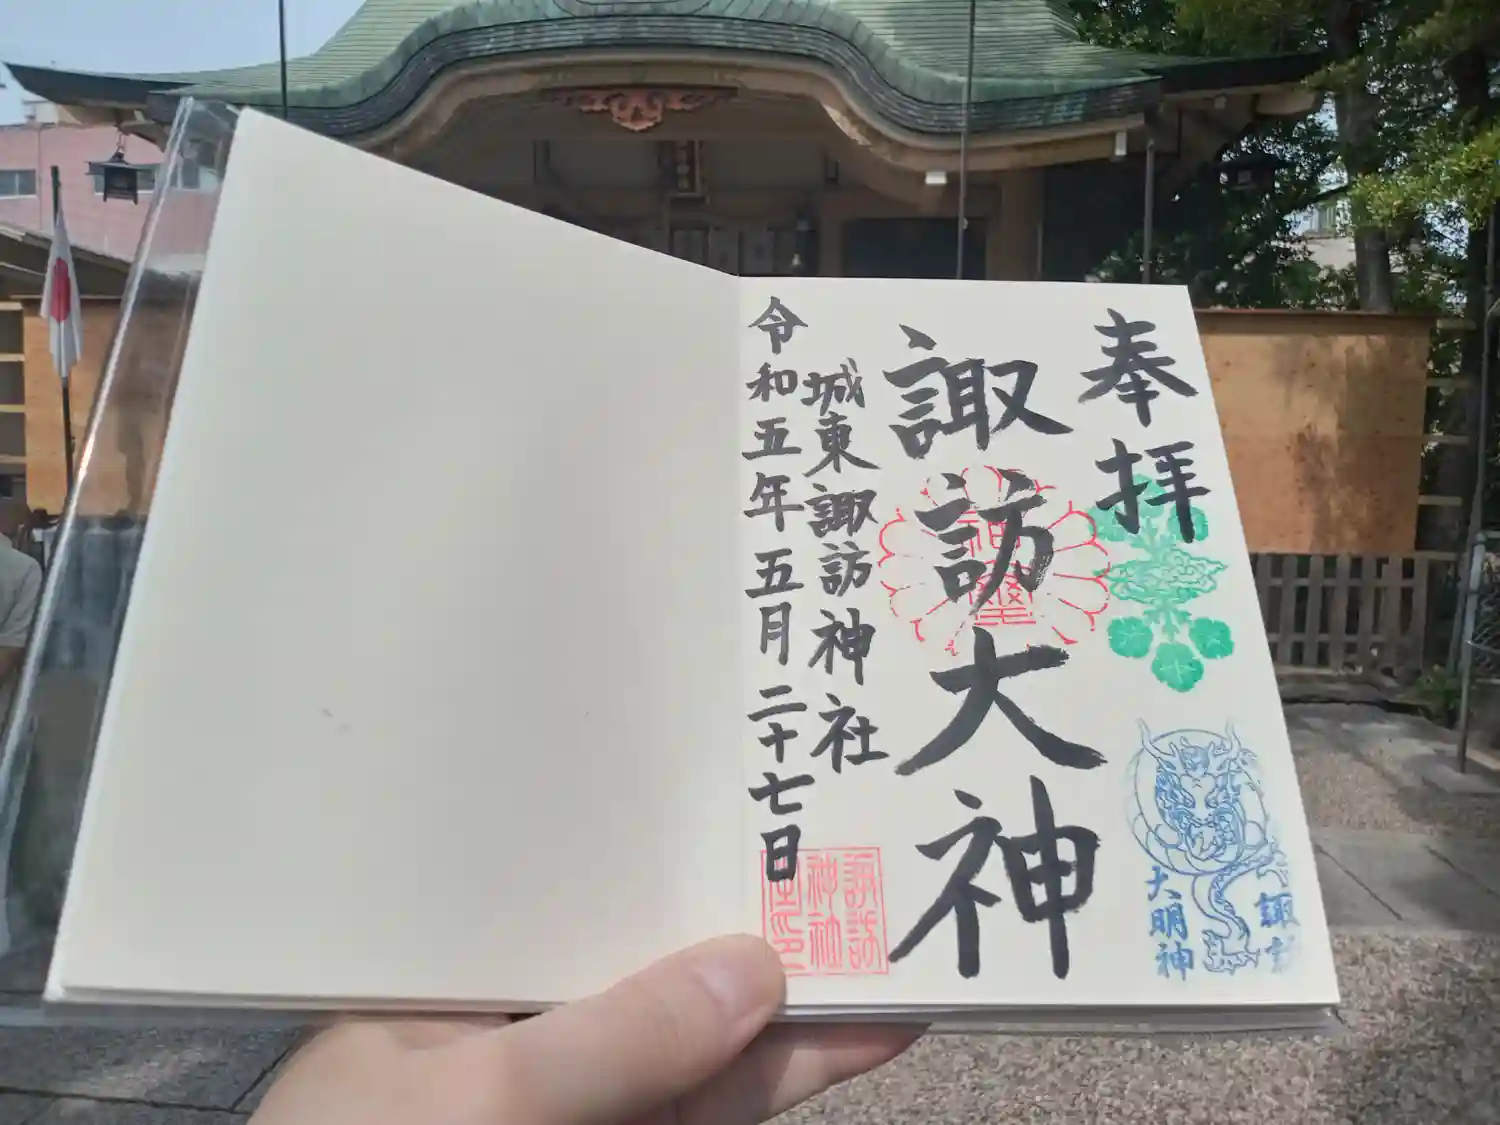 奉拝
諏訪大神
城東諏訪神社
令和五年五月二十七日
諏訪
神社
大明神